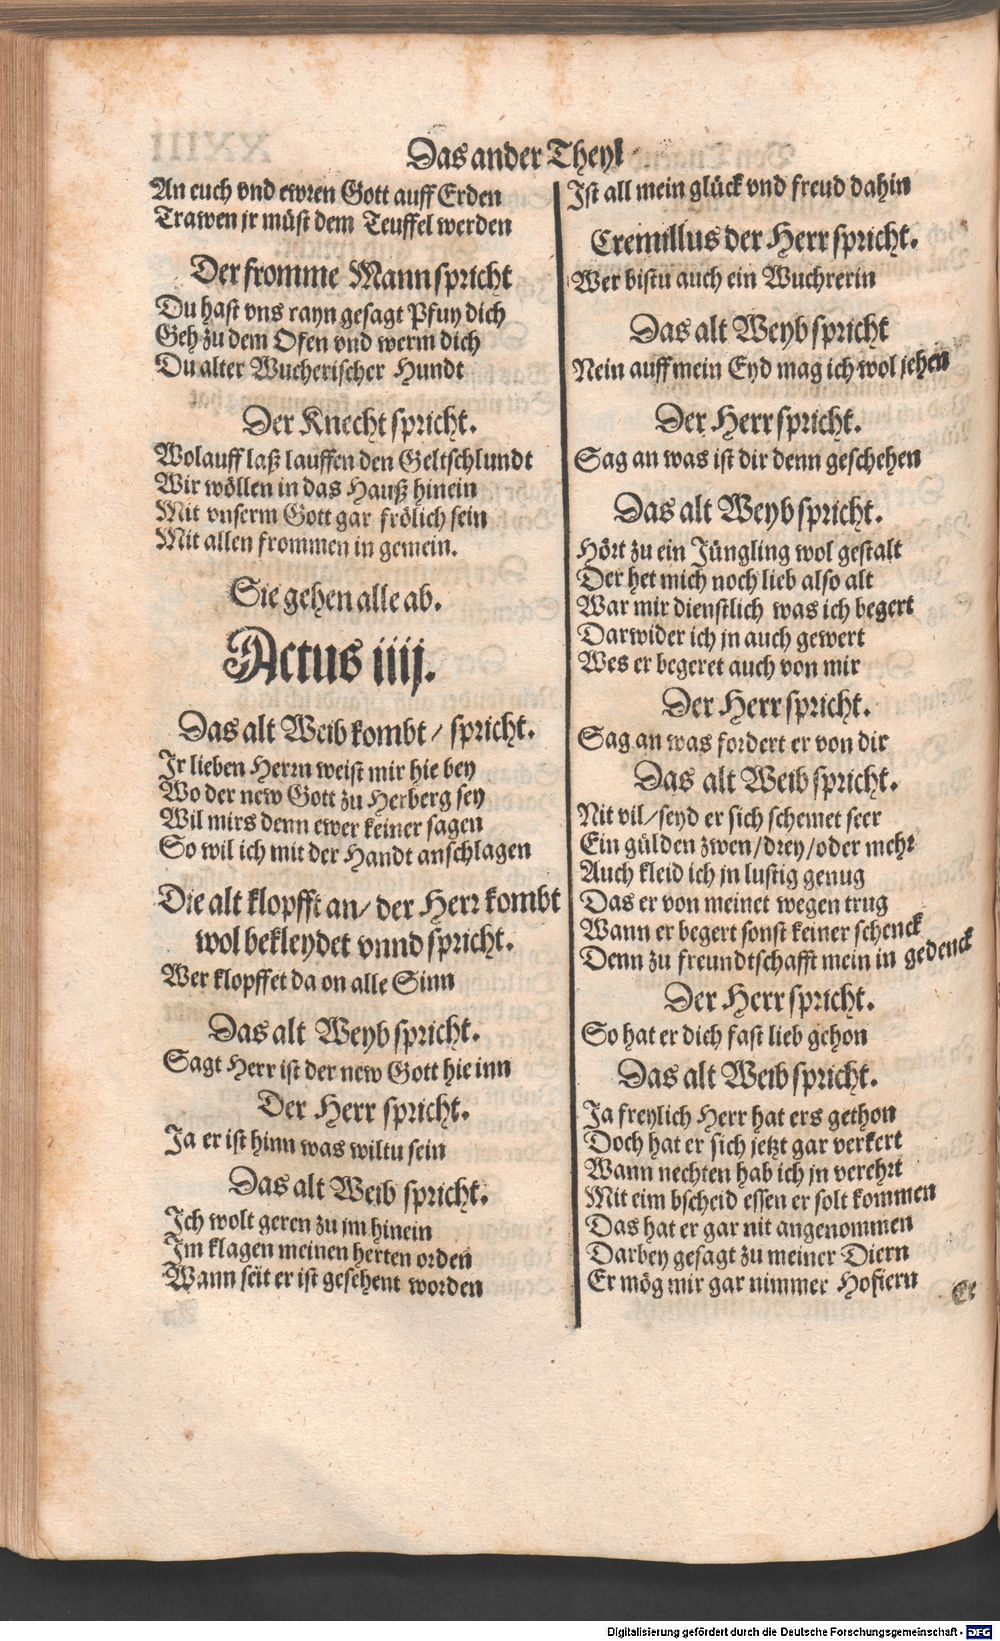 Das ander Theyl
An euch vnd ewren Gott auff Erden
Trawen jr müst dem Teuffel werden
Der fromme Mann spricht
Du hast vns rayn gesagt Pfuy dich
Geh zu dem Ofen vnd werm dich
Du alter Wucherischer Hundt
Der Knecht spricht.
Wolauff laß lauffen den Geltschlundt
Wir wöllen in das Hauß hinein
Mit vnserm Gott gar frölich sein
Mit allen frommen in gemein.
Sie gehen alle ab.
Actus iiij.
Das alt Weib kombt / spricht.
Ir lieben Herrn weist mir hie bey
Wo der new Gott zu Herberg sey
Wil mirs denn ewer keiner sagen
So wil ich mit der Handt anschlagen
Die alt klopfft an / der Herr kombt
wol bekleydet vnnd spricht.
Wer klopffet da on alle Sinn
Das alt Weyb spricht.
Sagt Herr ist der new Gott hie inn
Der Herr spricht.
Ja er ist hinn was wiltu sein
Das alt Weib spricht.
Ich wolt geren zu jm hinein
Im klagen meinen herten orden
Wann seit er ist gesehent worden
Ist all mein glück vnd freud dahin
Cremillus der Herr spricht.
Wer bistu auch ein Wuchrerin
Das alt Weyb spricht
Nein auff mein Eyd mag ich wol jehen
Der Herr spricht.
Sag an was ist dir denn geschehen
Das alt Weyb spricht.
Hört zu ein Jüngling wol gestalt
Der het mich noch lieb also alt
War mir dienstlich was ich begert
Darwider ich jn auch gewert
Wes er begeret auch von mir
Der Herr spricht.
Sag an was fordert er von dir
Das alt Weib spricht.
Nit vil / seyd er sich schemet seer
Ein gülden zwen / drey / oder mehr
Auch kleid ich jn lustig genug
Das er von meinet wegen trug
Wann er begert sonst keiner schenck
Denn zu freundtschafft mein in gedenck
Der Herr spricht.
So hat er dich fast lieb gehon
Das alt Weib spricht.
Ja freylich Herr hat ers gethon
Doch hat er sich jetzt gar verkert
Wann nechten hab ich jn verehrt
Mit eim bscheid essen er solt kommen
Das hat er gar nit angenommen
Darbey gesagt zu meiner Diern
Er mög mir gar nimmer Hofiern
Er
Digitalisierung gefördert durch die Deutsche Forschungsgemeinschaft - DFG